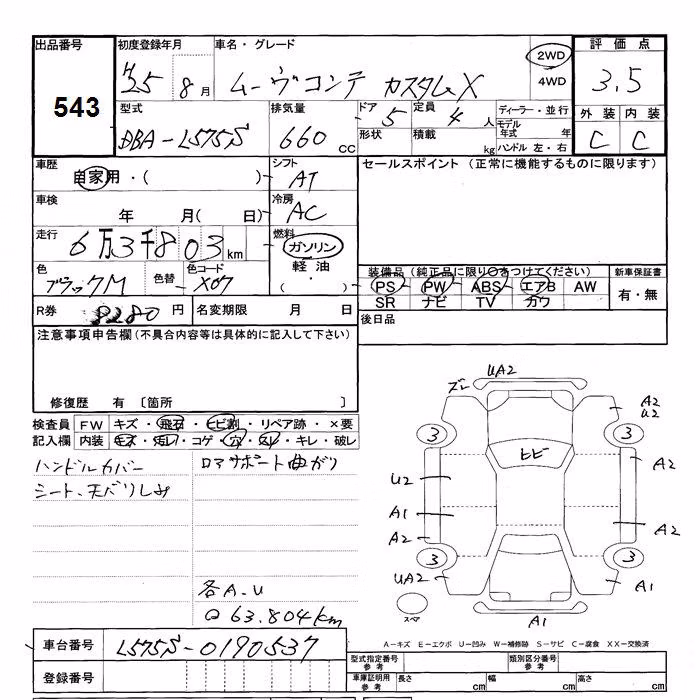 出品番号 初度登録年月 車名・グレード 評価点
543 H25 8月 ムーヴコンテ カスタムX 2WD 4WD 3.5
型式 排気量 ドア 定員 ディーラー・並行 外装 内装
DBA-L575S 660CC 5 4人 モデル年式 年 C C
形状 積載 kg ハンドル 左・右
車歴 自家用・( ) シフト AT セールスポイント (正常に機能するものに限ります)
車検 年 月(日) 冷房 AC
走行 6万3千803km 燃料 ガソリン
色 ブラックM 色替 色コード X07 軽油・( ) 装備品 (純正品に限り○をつけてください) 新車保証書
PS PW ABS エアB AW 有・無
SR ナビ TV カワ
R券 8280円 名変期限 月 日 後日品
注意事項申告欄 (不具合内容等は具体的に記入して下さい)
修復歴 有 〔箇所 〕
検査員 FW キズ・飛石・ヒビ割・リペア跡・×要
記入欄 内装 キズ・汚レ・コゲ・穴・スレ・キレ・破レ
ハンドルカバー ロアサポート曲ガリ
シート、天バリしみ
各A.U
63.804km
ズレ UA2
A2
U2
3 3
ヒビ
U2 A2
A1
A2 A2
3 3
UA2 A1
スペア A1
A−キズ E−エクボ U−凹み W−補修跡 S−サビ C−腐食 XX−交換済
車台番号 L575S-0190537
登録番号
型式指定番号 参考 類別区分番号 参考
車庫証明用 参考 長さ cm 幅 cm 高さ cm